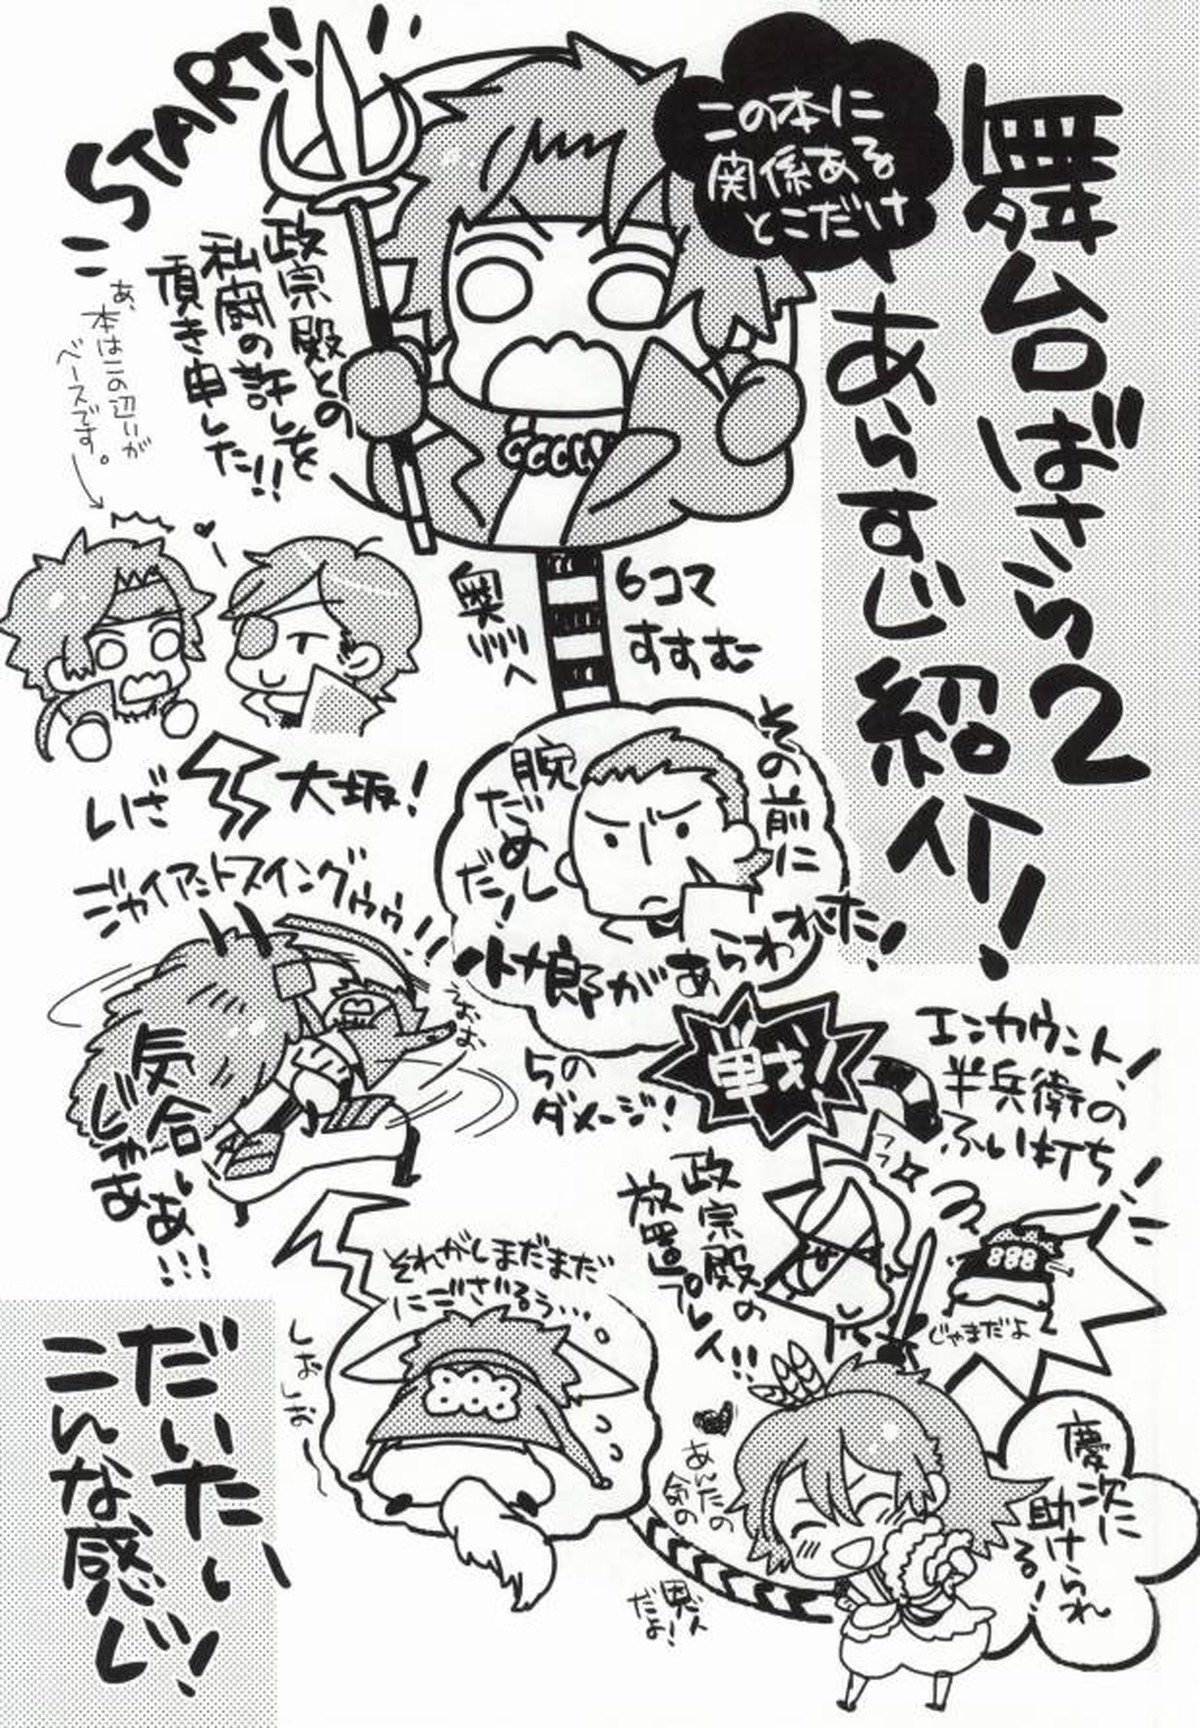 舞台ばさら2
あらすじ紹介!
この本に
関係ある
とこだけ
START!
政宗殿との
私闘の許しを
頂き申した!!
あ、本はこの辺りが
ベースです。
奥へ
6コマ
すすむ
いざ
大坂!
その前に
腕
だめし
だ!
小十郎があらわれた!
ジャイアントスイングゥゥ!!
うおお
気合じゃああ!!!
5の
ダメージ!
戦!
エンカウント!
半兵衛の
ふい打ち!
フフ
じゃまだよ
政宗殿の
放置プレイ!!
それがしまだまだ
にござるぅ…。
しお
しお〜
慶次に
助けられ
る!
あんたの
命の
恩人
だよ!
だいたい
こんな感じ!